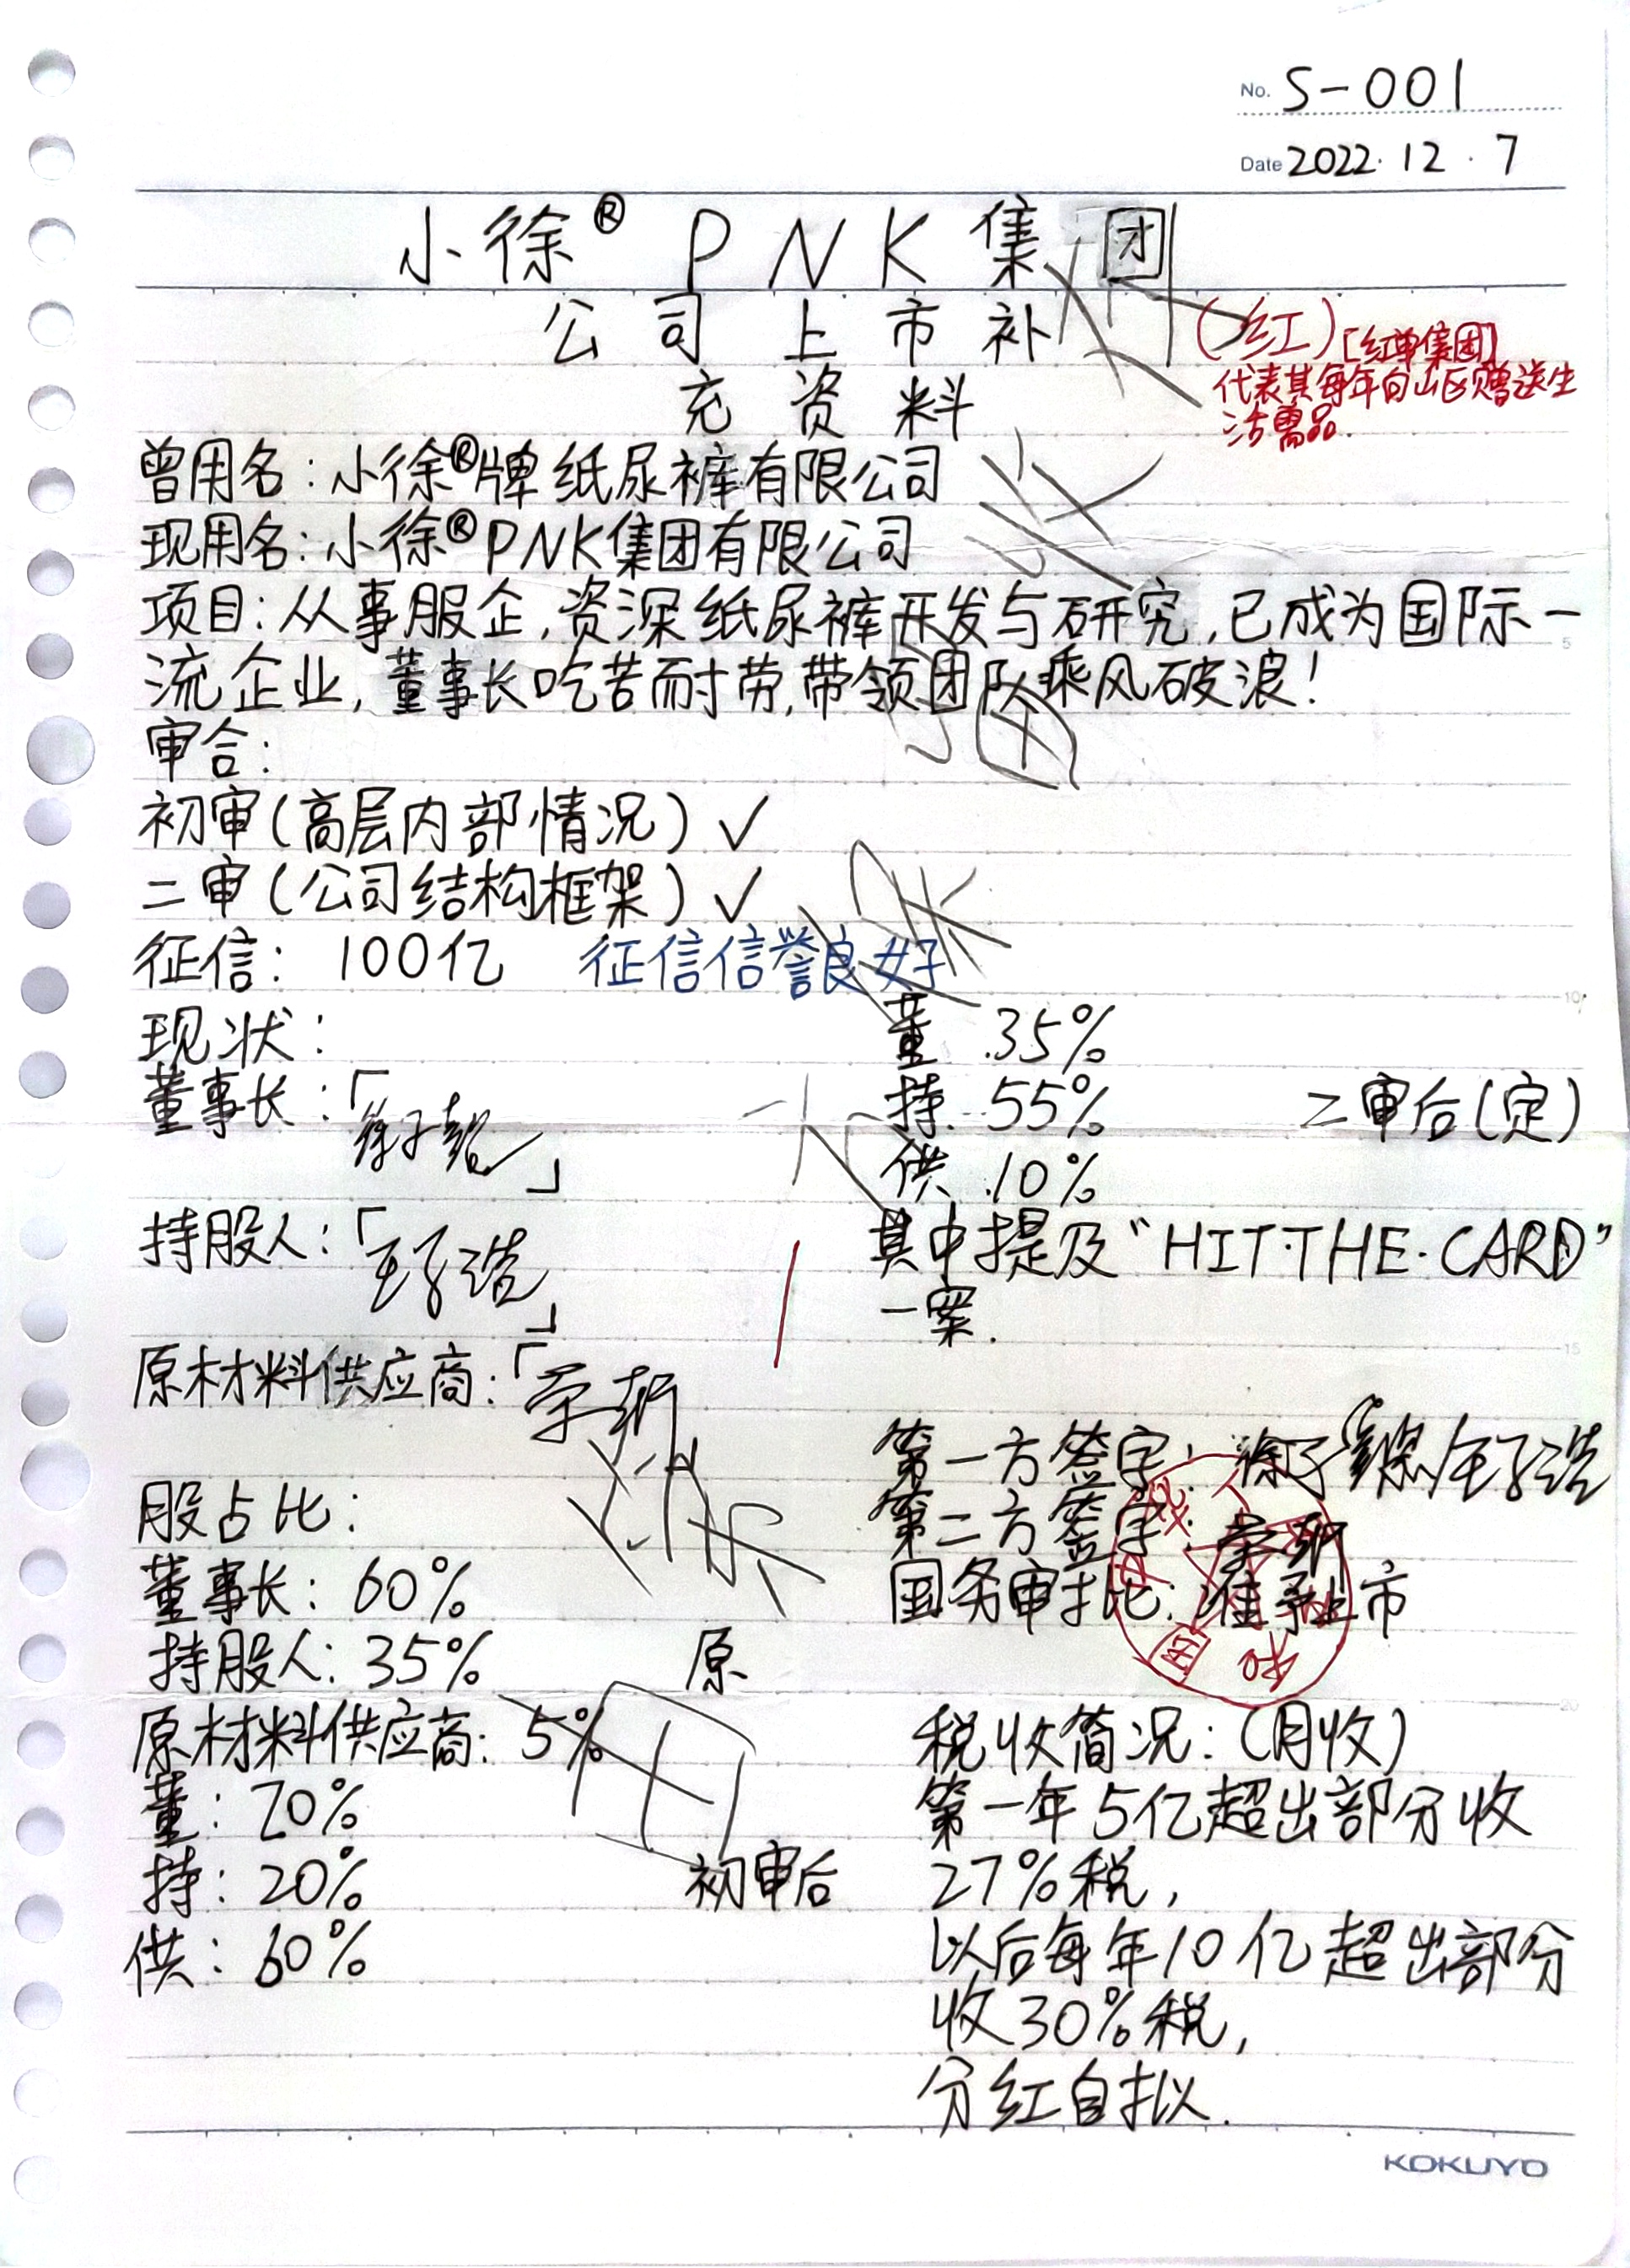 No. S-001
Date 2022.12.7
小徐® PNK集团
公司上市补
充资料
(红) [红单集团]
代表其每年向山区赠送生
活需品.
曾用名:小徐®牌纸尿裤有限公司
现用名:小徐®PNK集团有限公司
项目:从事服企,资深纸尿裤开发与研究,已成为国际一
流企业,董事长吃苦而耐劳,带领团队乘风破浪!
审合:
初审(高层内部情况)✓
二审(公司结构框架)✓
征信: 100亿 征信信誉良好
现状:
董事长:「徐子懿」
持股人:「王子浩」
原材料供应商:「
股占比:
董事长: 60%
持股人: 35%
原材料供应商: 5%
原
董: 20%
持: 20%
供: 60%
初审后
董.35%
持.55%
供.10%
二审后(定)
其中提及“HIT·THE·CARD”
一案.
第一方签字: 徐子 /王子浩
第二方签字:
国务审批: 准予上市
税收简况:(月收)
第一年5亿超出部分收
27%税,
以后每年10亿超出部分
收30%税,
分红自拟.
KOKUYO